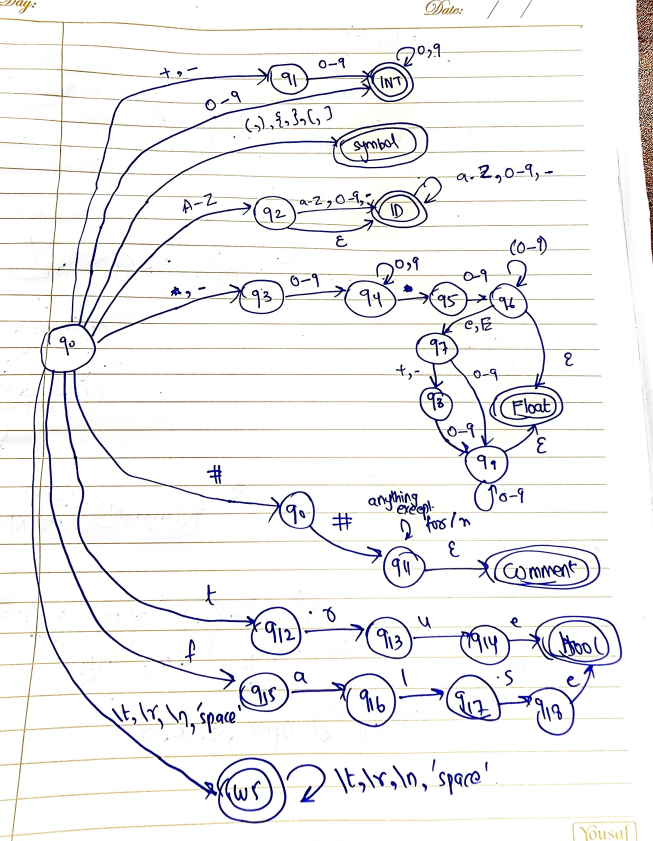 Day:
Date: / /
+,-
q1
0-9
INT
0,9
0-9
(,),{,},[,]
symbol
A-Z
q2
a-z,0-9,-
ID
a-z,0-9,-
ε
q3
0-9
q4
0,9
q5
0-9
q6
(0-9)
q0
e,E
q7
ε
+,-
0-9
q8
Float
0-9
q9
ε
0-9
#
q0
#
anything
except
for \n
q11
ε
comment
t
q12
r
q13
u
q14
e
f
q15
a
q16
l
q17
s
q18
e
\t,\r,\n,'space'
ws
\t,\r,\n,'space'
Yousaf